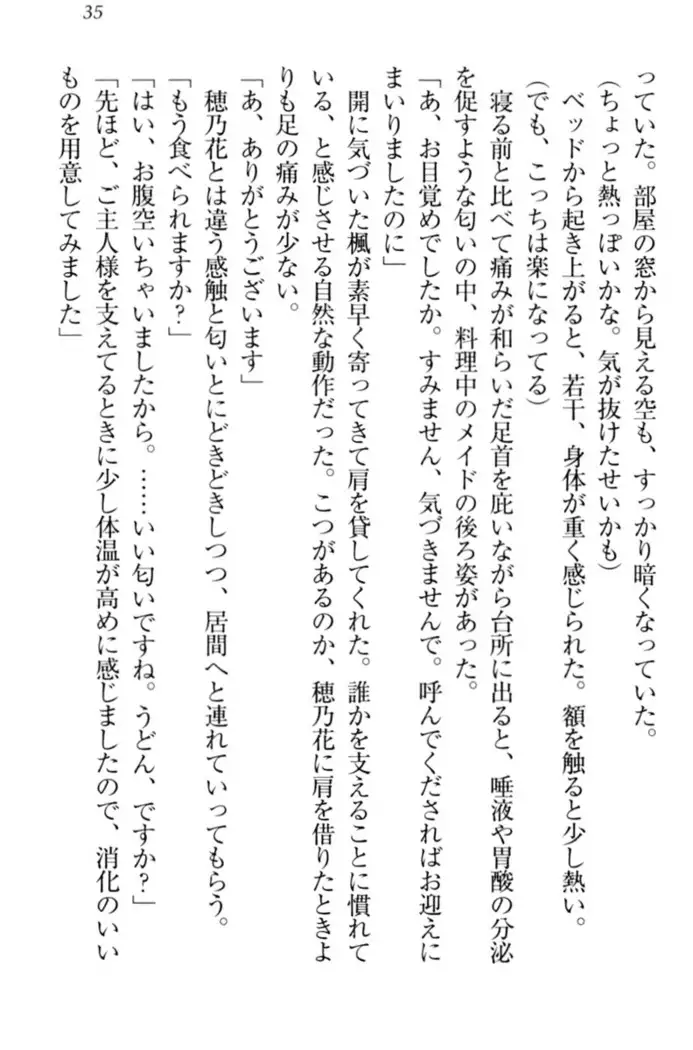 35
っていた。部屋の窓から見える空も、すっかり暗くなっていた。
(ちょっと熱っぽいかな。気が抜けたせいかも)
ベッドから起き上がると、若干、身体が重く感じられた。額を触ると少し熱い。
(でも、こっちは楽になってる)
寝る前と比べて痛みが和らいだ足首を庇いながら台所に出ると、唾液や胃酸の分泌
を促すような匂いの中、料理中のメイドの後ろ姿があった。
「あ、お目覚めでしたか。すみません、気づきませんで。呼んでくださればお迎えに
まいりましたのに」
開に気づいた楓が素早く寄ってきて肩を貸してくれた。誰かを支えることに慣れて
いる、と感じさせる自然な動作だった。こつがあるのか、穂乃花に肩を借りたときよ
りも足の痛みが少ない。
「あ、ありがとうございます」
穂乃花とは違う感触と匂いとにどきどきしつつ、居間へと連れていってもらう。
「もう食べられますか?」
「はい、お腹空いちゃいましたから。……いい匂いですね。うどん、ですか?」
「先ほど、ご主人様を支えてるときに少し体温が高めに感じましたので、消化のいい
ものを用意してみました」